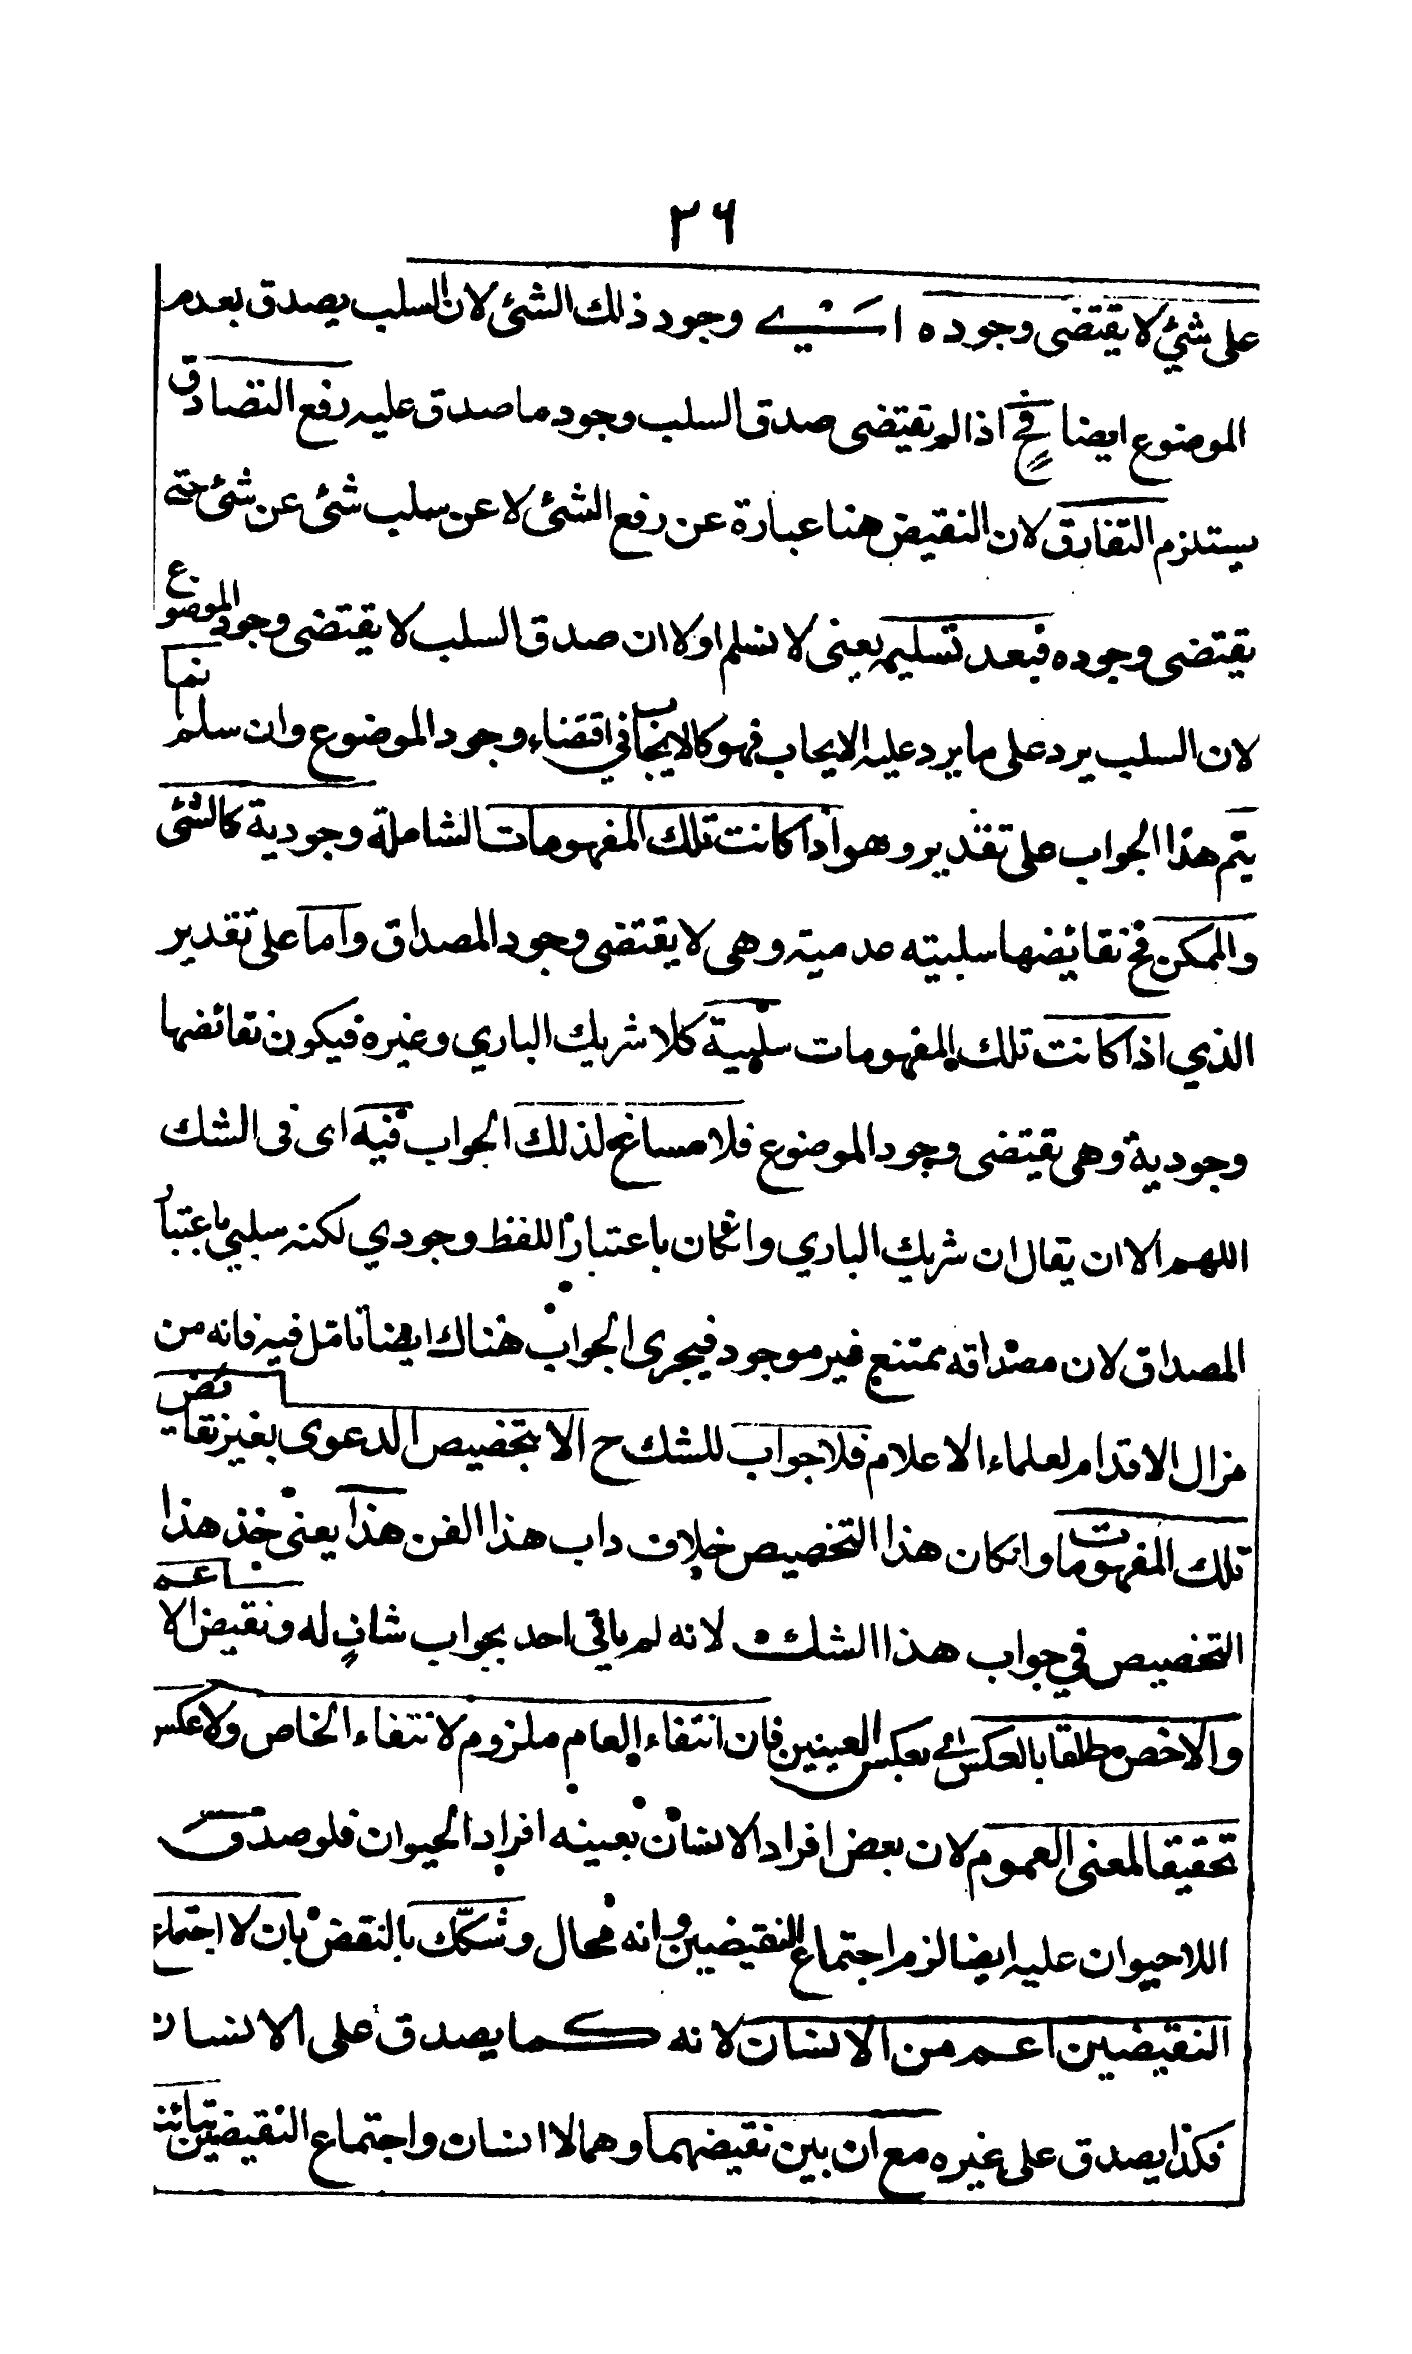 ٣٦
على شئ لا يقتضى وجوده اى وجود ذلك الشئ لان السلب يصدق بعدم
الموضوع ايضا فح اذا لم تقتضى صدق السلب وجود ما صدق عليه رفع التصادق
يستلزم التفارق لان النقيض هنا عبارة عن رفع الشئ لا عن سلب شئ عن شئ حتى
يقتضى وجوده فبعد تسليمه يعنى لا نسلم اولا ان صدق السلب لا يقتضى وجود الموضوع
لان السلب يرد على ما يرد عليه الايجاب فهو كالايجاب فى اقتضاء وجود الموضوع وان سلم انما
يتم هذا الجواب على تقدير وهو اذا كانت تلك المفهومات الشاملة وجودية كالشئ
والممكن فح نقائضها سلبيته عدميته وهى لا يقتضى وجود المصداق واما على تقدير
الذي اذا كانت تلك المفهومات سلبية كلا شريك الباري وغيره فيكون نقائضها
وجودية وهى يقتضى وجود الموضوع فلا مساغ لذلك الجواب فيه اى فى الشك
اللهم الا ان يقال ان شريك الباري وان كان باعتبار اللفظ وجودي لكنه سلبي باعتبار
المصداق لان مصداقه ممتنع غير موجود فيجرى الجواب هناك ايضا تامل فيه فانه من
مزال الاقدام لعلماء الاعلام فلا جواب للشك ح الا بتخصيص الدعوى بغير نقائض
تلك المفهومات وانكان هذا التخصيص خلاف داب هذا الفن هذا يعنى خذ هذا
التخصيص في جواب هذا الشك لانه لم ياتى احد بجواب شاف له ونقيض الاعم
والاخص مطلقا بالعكس اى بعكس العينين فان انتفاء العام ملزوم لانتفاء الخاص ولا عكس
تحقيقا لمعنى العموم لان بعض افراد الانسان بعينه افراد الحيوان فلو صدق
اللاحيوان عليه ايضا لزم اجتماع النقيضين وانه محال وشكك بالنقض بان لا اجتماع
النقيضين اعم من الانسان لانه كما يصدق على الانسان
فكذا يصدق على غيره مع ان بين نقيضهما وهما لا انسان واجتماع النقيضين تباينا